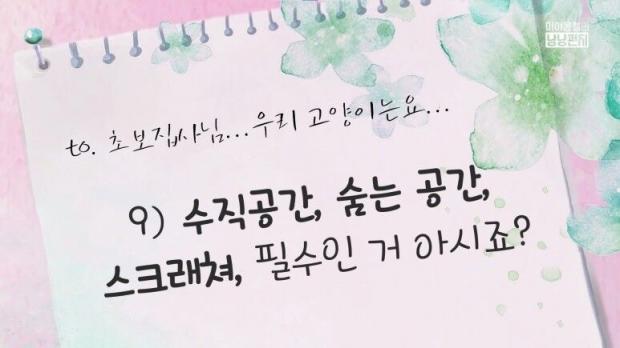 미야옹철의
냥냥펀치
to. 초보집사님...우리 고양이는요...
9) 수직공간, 숨는 공간,
스크래쳐, 필수인 거 아시죠?